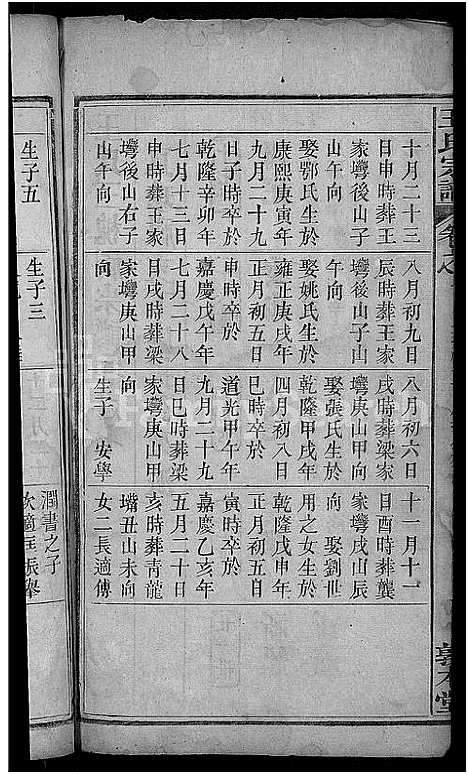 王氏宗譜
敦本堂
十月二十三
日申時葬王
家壪後山子
山午向
娶鄂氏生於
康熙庚寅年
九月二十九
日子時卒於
乾隆辛卯年
七月十三日
申時葬王家
壪後山右子
山午向
八月初九日
辰時葬王家
壪後山子山
午向
娶姚氏生於
雍正庚戌年
正月初五日
申時卒於
嘉慶戊午年
七月二十八
日戌時葬梁
家壪庚山甲
向
八月初六日
戌時葬梁家
壪庚山甲向
娶張氏生於
乾隆甲戌年
四月初八日
巳時卒於
道光甲午年
九月二十九
日巳時葬梁
家壪庚山甲
向
生子 安學
十一月十一
日酉時葬龔
家壪戌山辰
向 娶劉世
用之女生於
乾隆戊申年
正月初五日
寅時卒於
嘉慶乙亥年
五月二日
亥時葬青龍
嘴丑山未向
女二長適傅
生子五
生子三
潤書之子
次適匡振舉